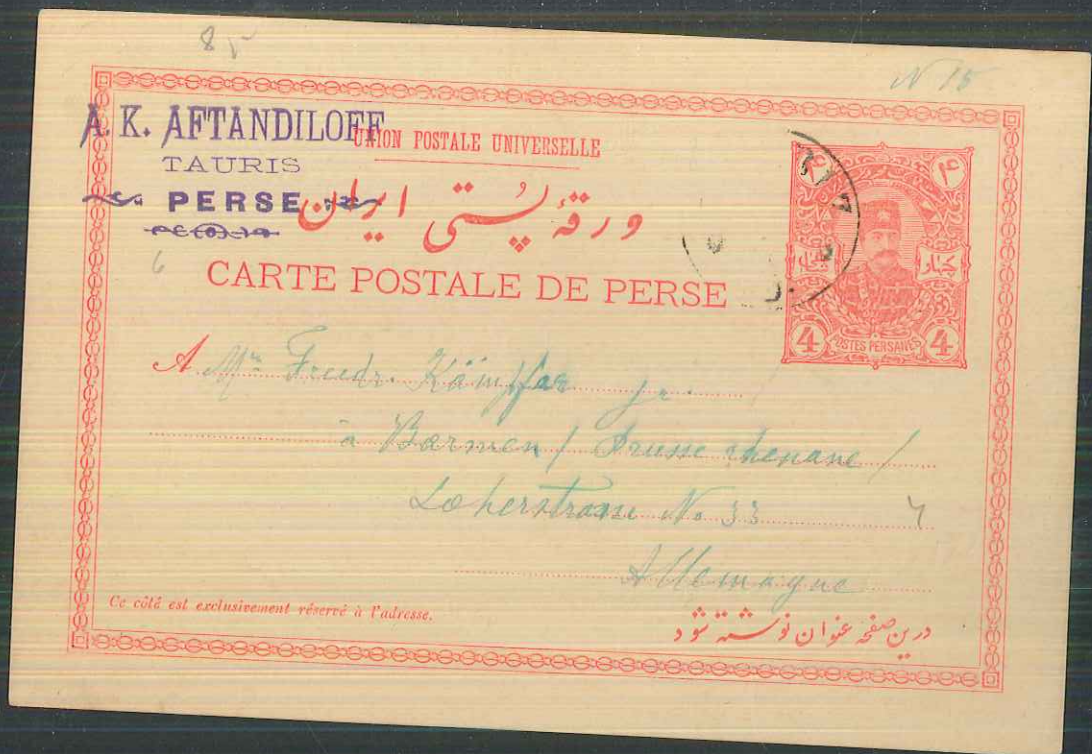 85
N 15
A. K. AFTANDILOFF
TAURIS
PERSE
UNION POSTALE UNIVERSELLE
ورقهٔ پُستی ایران
CARTE POSTALE DE PERSE
۴ ۴
چهار
4 POSTES PERSANES 4
6
A Mr Friedr. Kämpfer jr.
à Barmen / Prusse rhenane /
Loherstrasse No 33
Allemagne
Ce côté est exclusivement réservé à l'adresse.
درین صفحه عنوان نوشته شود